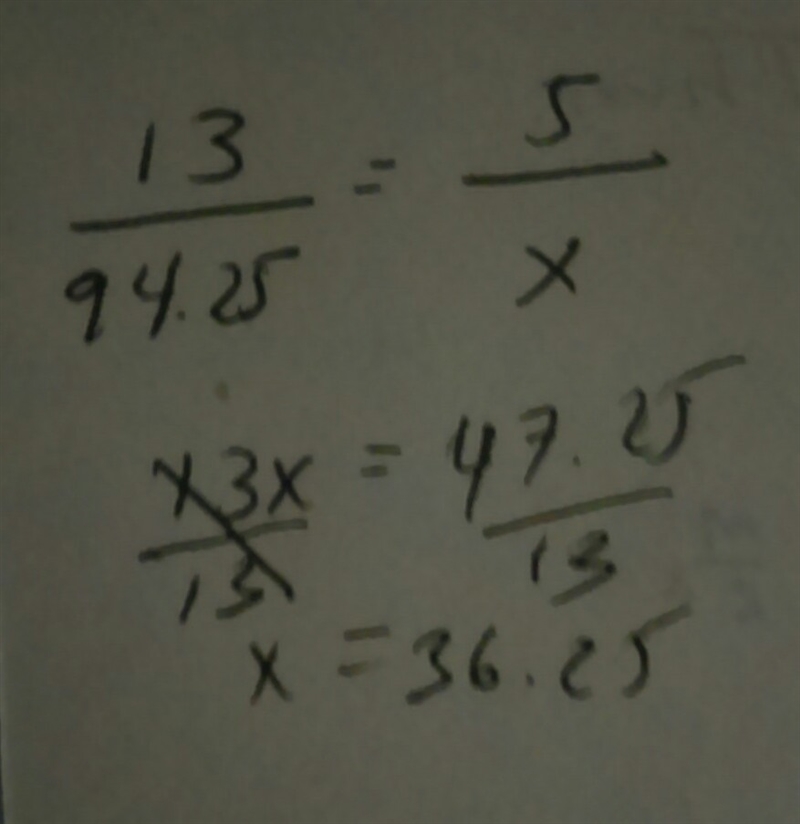 13/94.25 = 5/x
13x/13 = 47.25/13
x = 36.25